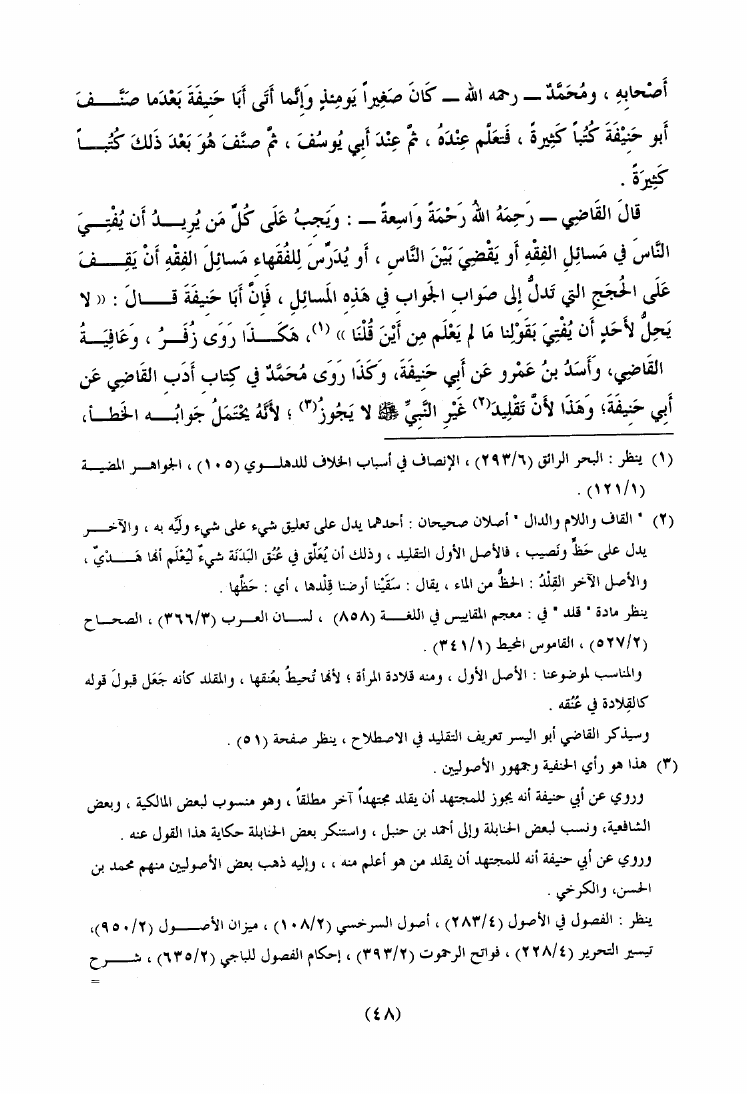 أَصْحابِهِ ، ومُحَمَّدٌ ــ رحمه الله ــ كَانَ صَغِيراً يَومِئذٍ وَإِنَّما أَتَى أَبَا حَنِيفَةَ بَعْدَما صَنَّـــف
أبو حَنِيْفَةَ كُتُباً كَثِيرةً ، فَتَعَلَّم عِنْدَهُ ، ثمَّ عِنْدَ أَبي يُوسُفَ ، ثمَّ صنَّفَ هُوَ بَعْدَ ذَلكَ كُتُبـــاً
كَثِيرَةً .
قالَ القَاضِي ــ رَحِمَهُ اللهُ رَحْمَةً وَاسِعةً ــ : ويَجبُ عَلَى كُلِّ مَن يُرِيـــدُ أن يُفْتِـــيَ
النَّاسَ في مَسائِلِ الفِقْهِ أو يَقْضِيَ بَيْنَ النَّاسِ ، أو يُدَرِّسَ لِلفُقَهاءِ مَسائِلَ الفِقْهِ أنْ يَقِـــفَ
عَلَى الحُجَجِ التي تَدلُّ إلى صَوابِ الجَوابِ في هَذِهِ المَسائلِ ، فَإِنَّ أبَا حَنِيفَةَ قَـــالَ : « لا
يَحِلُّ لأَحَدٍ أن يُفْتِيَ بَقَولِنا مَا لم يَعْلَم مِن أَيْنَ قُلْنَا » (١)، هَكَـــذا رَوَى زُفَـــرُ ، وعَافِيَـــةُ
القَاضِي، وأَسَدُ بنُ عَمْرو عَن أبي حَنِيفَةَ، وكَذَا رَوَى مُحَمَّدٌ في كِتاب أدَب القَاضِي عَن
أبي حَنِيفَةَ؛ وَهَذَا لأَنَّ تَقْلِيدَ(٢) غَيْرِ النَّبيِّ ﷺ لا يَجُوزُ(٣) ؛ لأَنَّهُ يَحْتَمَلُ جَوابُـــه الخَطـــأ،
(١) ينظر : البحر الرائق (٢٩٣/٦) ، الإنصاف في أسباب الخلاف للدهلـــوي (١٠٥) ، الجواهـــر المضيـــة
(١٢١/١) .
(٢) " القاف واللام والدال " أصلان صحيحان : أحدهما يدل على تعليق شيء على شيء ولَيِّه به ، والآخـــر
يدل على حَظٍّ ونَصيب ، فالأصل الأول التقليد ، وذلك أن يُعَلَّق في عُنُق البَدَنَة شيءٌ لِيُعْلَم أنها هَـــدْيٌ ،
والأصل الآخر القِلْدُ : الحَظُّ من الماء ، يقال : سَقَيْنا أرضَنا قِلْدها ، أي : حَظَّها .
ينظر مادة " قلد " في : معجم المقاييس في اللغـــة (٨٥٨) ، لســـان العـــرب (٣٦٦/٣) ، الصحـــاح
(٥٢٧/٢) ، القاموس المحيط (٣٤١/١) .
والمناسب لموضوعنا : الأصل الأول ، ومنه قلادة المرأة ؛ لأنها تُحيطُ بعُنقها ، والمقلد كأنه جَعَل قبولَ قوله
كالقِلادة في عُنُقه .
وسيذكر القاضي أبو اليسر تعريف التقليد في الاصطلاح ، ينظر صفحة (٥١) .
(٣) هذا هو رأي الحنفية وجمهور الأصوليين .
وروي عن أبي حنيفة أنه يجوز للمجتهد أن يقلد مجتهداً آخر مطلقاً ، وهو منسوب لبعض المالكية ، وبعض
الشافعية، ونسب لبعض الحنابلة وإلى أحمد بن حنبل ، واستنكر بعض الحنابلة حكاية هذا القول عنه .
وروي عن أبي حنيفة أنه للمجتهد أن يقلد من هو أعلم منه ، ، وإليه ذهب بعض الأصوليين منهم محمد بن
الحسن، والكرخي .
ينظر : الفصول في الأصول (٢٨٣/٤) ، أصول السرخسي (١٠٨/٢) ، ميزان الأصـــول (٩٥٠/٢)،
تيسير التحرير (٢٢٨/٤) ، فواتح الرحموت (٣٩٣/٢) ، إحكام الفصول للباجي (٦٣٥/٢) ، شـــرح
=
(٤٨)